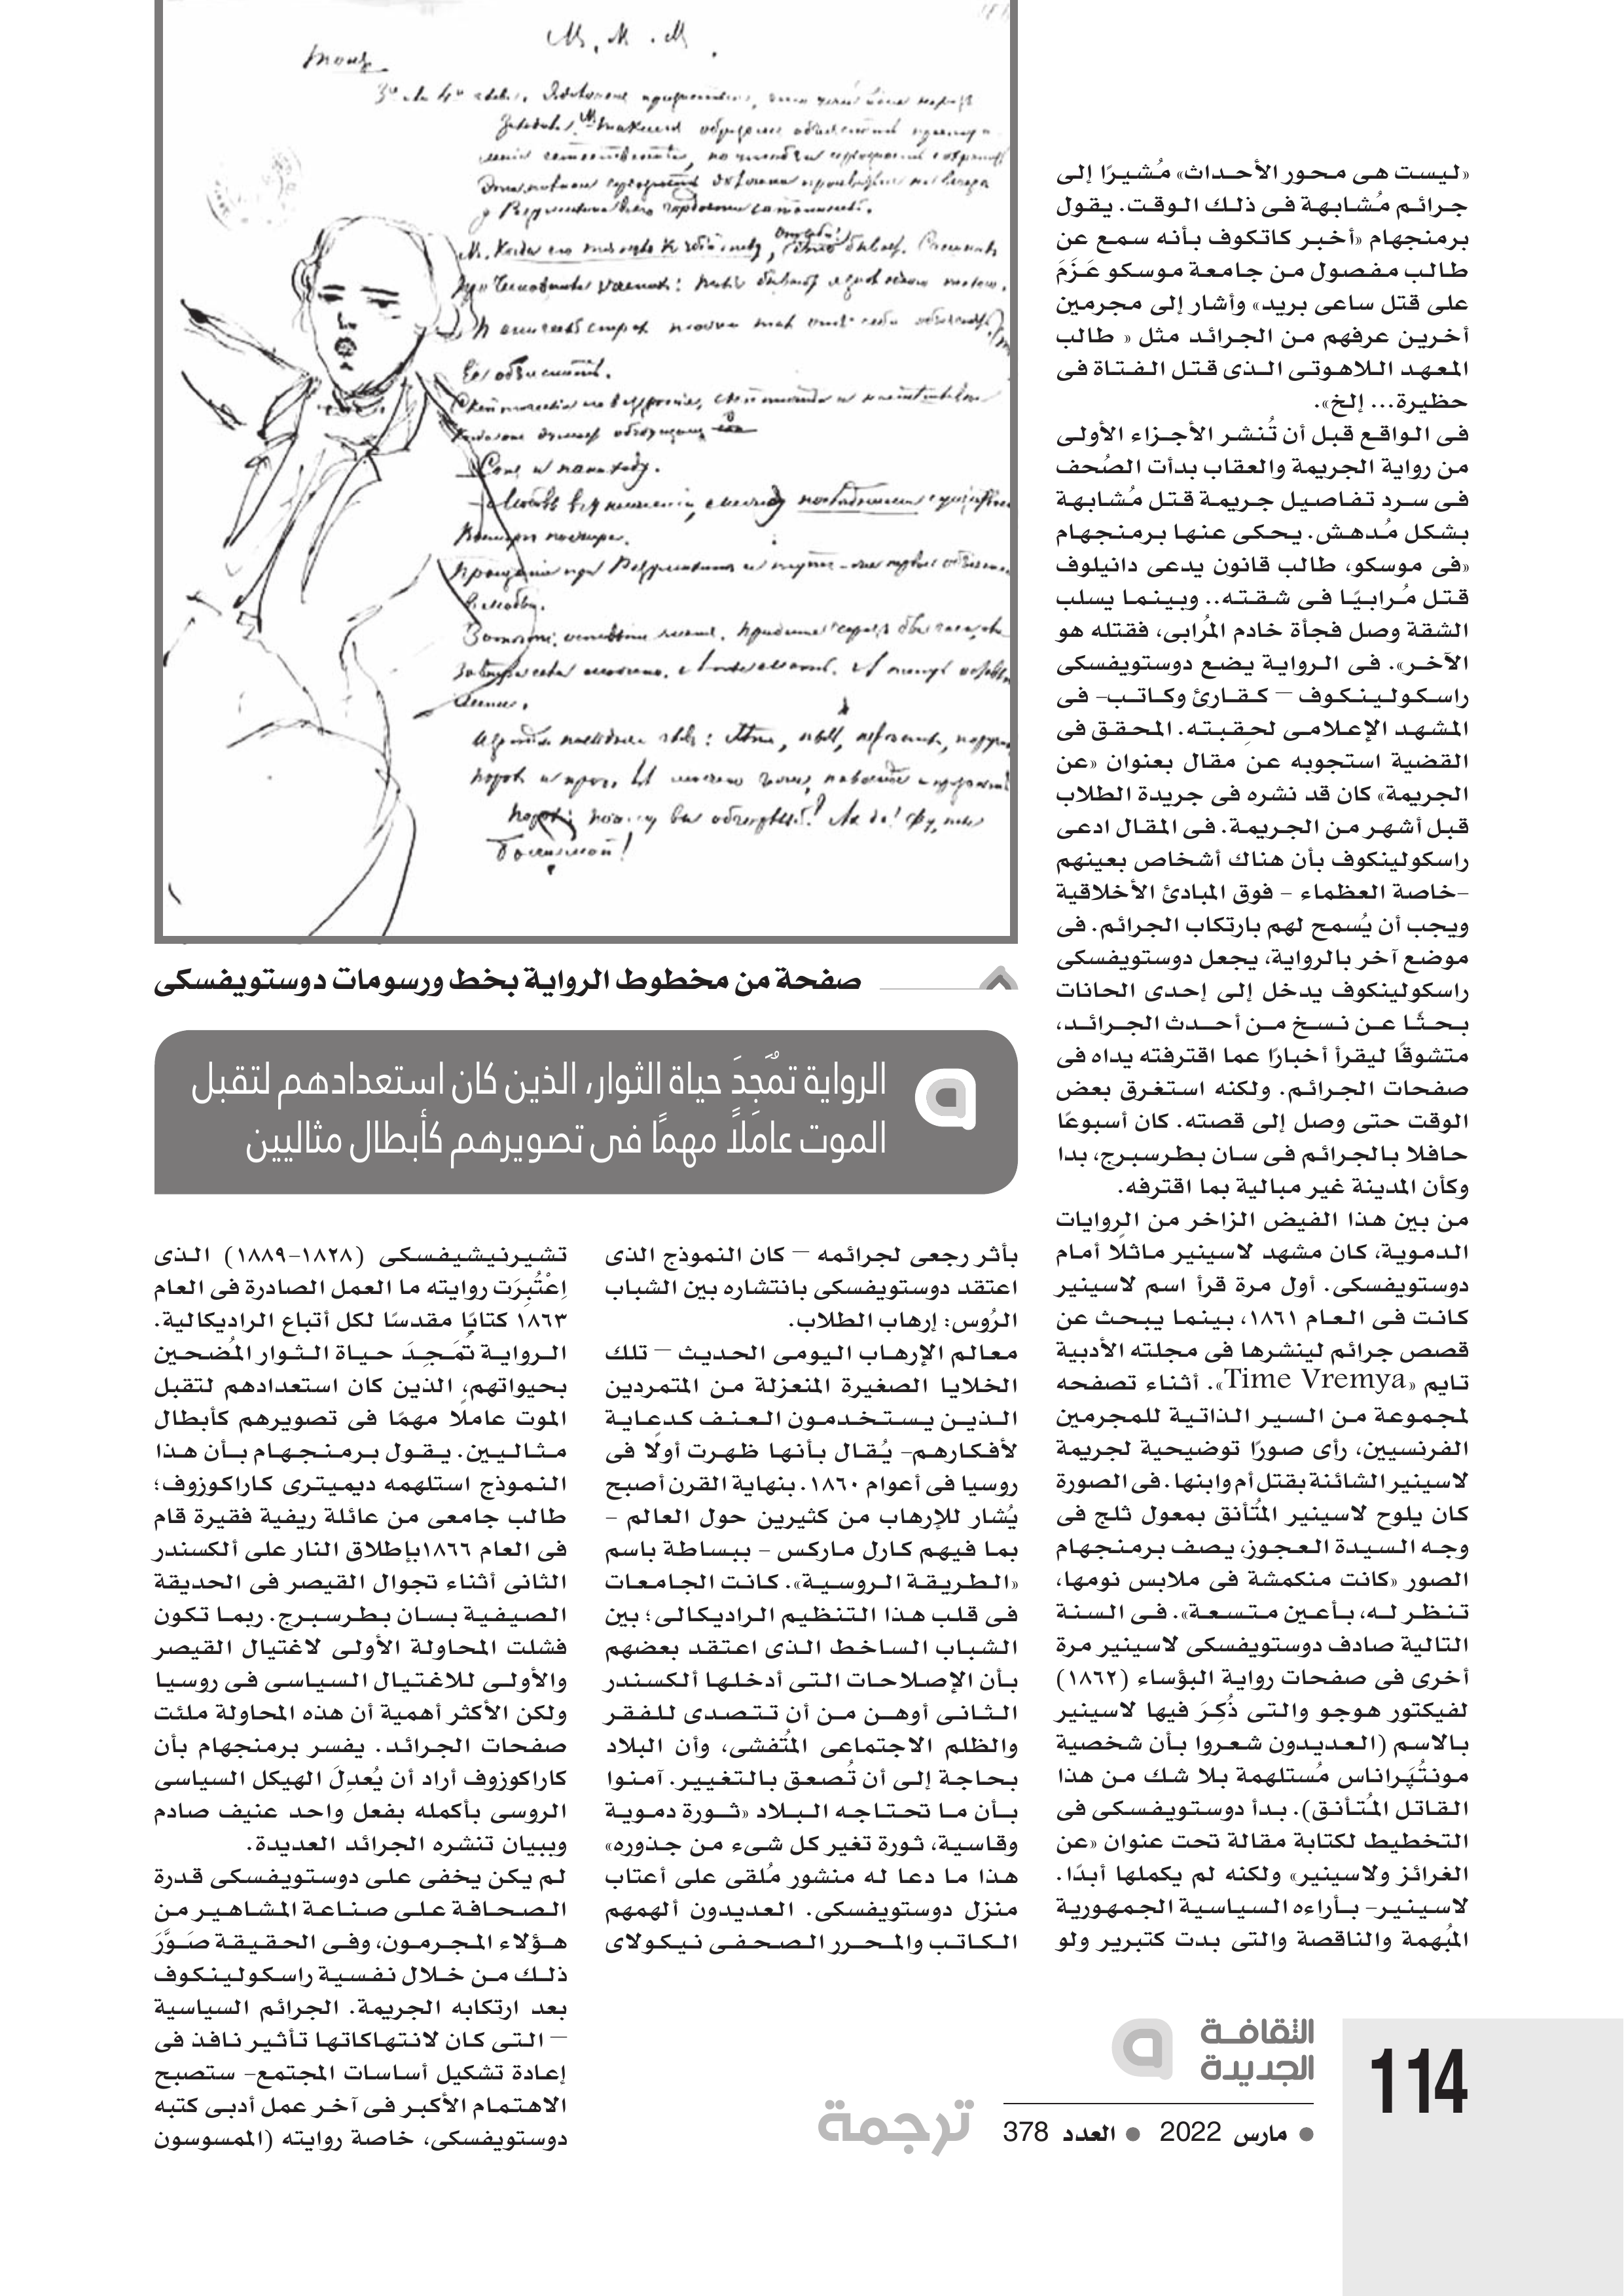 «ليست هى محور الأحداث» مُشيرًا إلى
جرائم مُشابهة فى ذلك الوقت. يقول
برمنجهام «أخبر كاتكوف بأنه سمع عن
طالب مفصول من جامعة موسكو عَزَمَ
على قتل ساعى بريد» وأشار إلى مجرمين
أخرين عرفهم من الجرائد مثل « طالب
المعهد اللاهوتى الذى قتل الفتاة فى
حظيرة... إلخ».
فى الواقع قبل أن تُنشر الأجزاء الأولى
من رواية الجريمة والعقاب بدأت الصُحف
فى سرد تفاصيل جريمة قتل مُشابهة
بشكل مُدهش. يحكى عنها برمنجهام
«فى موسكو، طالب قانون يدعى دانيلوف
قتل مُرابيًا فى شقته.. وبينما يسلب
الشقة وصل فجأة خادم المُرابى، فقتله هو
الآخر». فى الرواية يضع دوستويفسكى
راسكولينكوف – كقارئ وكاتب- فى
المشهد الإعلامى لحِقبته. المحقق فى
القضية استجوبه عن مقال بعنوان «عن
الجريمة» كان قد نشره فى جريدة الطلاب
قبل أشهر من الجريمة. فى المقال ادعى
راسكولينكوف بأن هناك أشخاص بعينهم
-خاصة العظماء - فوق المبادئ الأخلاقية
ويجب أن يُسمح لهم بارتكاب الجرائم. فى
موضع آخر بالرواية، يجعل دوستويفسكى
راسكولينكوف يدخل إلى إحدى الحانات
بحثًا عن نسخ من أحدث الجرائد،
متشوقًا ليقرأ أخبارًا عما اقترفته يداه فى
صفحات الجرائم. ولكنه استغرق بعض
الوقت حتى وصل إلى قصته. كان أسبوعًا
حافلا بالجرائم فى سان بطرسبرج، بدا
وكأن المدينة غير مبالية بما اقترفه.
من بين هذا الفيض الزاخر من الروايات
الدموية، كان مشهد لاسينير ماثلًا أمام
دوستويفسكى. أول مرة قرأ اسم لاسينير
كانت فى العام ١٨٦١، بينما يبحث عن
قصص جرائم لينشرها فى مجلته الأدبية
تايم «Time Vremya». أثناء تصفحه
لمجموعة من السير الذاتية للمجرمين
الفرنسيين، رأى صورًا توضيحية لجريمة
لاسينير الشائنة بقتل أم وابنها. فى الصورة
كان يلوح لاسينير المُتأنق بمعول ثلج فى
وجه السيدة العجوز، يصف برمنجهام
الصور «كانت منكمشة فى ملابس نومها،
تنظر له، بأعين متسعة». فى السنة
التالية صادف دوستويفسكى لاسينير مرة
أخرى فى صفحات رواية البؤساء (١٨٦٢)
لفيكتور هوجو والتى ذُكِرَ فيها لاسينير
بالاسم (العديدون شعروا بأن شخصية
مونتُپَراناس مُستلهمة بلا شك من هذا
القاتل المُتأنق). بدأ دوستويفسكى فى
التخطيط لكتابة مقالة تحت عنوان «عن
الغرائز ولاسينير» ولكنه لم يكملها أبدًا.
لاسينير- بأراءه السياسية الجمهورية
المُبهمة والناقصة والتى بدت كتبرير ولو
صفحة من مخطوط الرواية بخط ورسومات دوستويفسكى
الرواية تُمَجِدَ حياة الثوار، الذين كان استعدادهم لتقبل
الموت عاملًا مهمًا فى تصويرهم كأبطال مثاليين
بأثر رجعى لجرائمه – كان النموذج الذى
اعتقد دوستويفسكى بانتشاره بين الشباب
الرُوس: إرهاب الطلاب.
معالم الإرهاب اليومى الحديث – تلك
الخلايا الصغيرة المنعزلة من المتمردين
الذين يستخدمون العنف كدعاية
لأفكارهم- يُقال بأنها ظهرت أولًا فى
روسيا فى أعوام ١٨٦٠. بنهاية القرن أصبح
يُشار للإرهاب من كثيرين حول العالم -
بما فيهم كارل ماركس - ببساطة باسم
«الطريقة الروسية». كانت الجامعات
فى قلب هذا التنظيم الراديكالى؛ بين
الشباب الساخط الذى اعتقد بعضهم
بأن الإصلاحات التى أدخلها ألكسندر
الثانى أوهن من أن تتصدى للفقر
والظلم الاجتماعى المُتفشى، وأن البلاد
بحاجة إلى أن تُصعق بالتغيير. آمنوا
بأن ما تحتاجه البلاد «ثورة دموية
وقاسية، ثورة تغير كل شىء من جذوره»
هذا ما دعا له منشور مُلقى على أعتاب
منزل دوستويفسكى. العديدون ألهمهم
الكاتب والمحرر الصحفى نيكولاى
تشيرنيشيفسكى (١٨٢٨-١٨٨٩) الذى
اِعْتُبِرَت روايته ما العمل الصادرة فى العام
١٨٦٣ كتابًا مقدسًا لكل أتباع الراديكالية.
الرواية تُمَجِدَ حياة الثوار المُضحين
بحيواتهم، الذين كان استعدادهم لتقبل
الموت عاملًا مهمًا فى تصويرهم كأبطال
مثاليين. يقول برمنجهام بأن هذا
النموذج استلهمه ديميترى كاراكوزوف؛
طالب جامعى من عائلة ريفية فقيرة قام
فى العام ١٨٦٦بإطلاق النار على ألكسندر
الثانى أثناء تجوال القيصر فى الحديقة
الصيفية بسان بطرسبرج. ربما تكون
فشلت المحاولة الأولى لاغتيال القيصر
والأولى للاغتيال السياسى فى روسيا
ولكن الأكثر أهمية أن هذه المحاولة ملئت
صفحات الجرائد. يفسر برمنجهام بأن
كاراكوزوف أراد أن يُعدِلَ الهيكل السياسى
الروسى بأكمله بفعل واحد عنيف صادم
وببيان تنشره الجرائد العديدة.
لم يكن يخفى على دوستويفسكى قدرة
الصحافة على صناعة المشاهير من
هؤلاء المجرمون، وفى الحقيقة صَوَّرَ
ذلك من خلال نفسية راسكولينكوف
بعد ارتكابه الجريمة. الجرائم السياسية
– التى كان لانتهاكاتها تأثير نافذ فى
إعادة تشكيل أساسات المجتمع- ستصبح
الاهتمام الأكبر فى آخر عمل أدبى كتبه
دوستويفسكى، خاصة روايته (الممسوسون
الثقافة
الجديدة
114
● مارس 2022 ● العدد 378
ترجمة